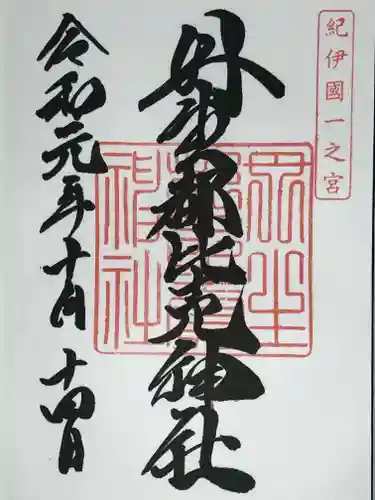 紀伊國一之宮
丹生都比売神社
令和元年十月十四日